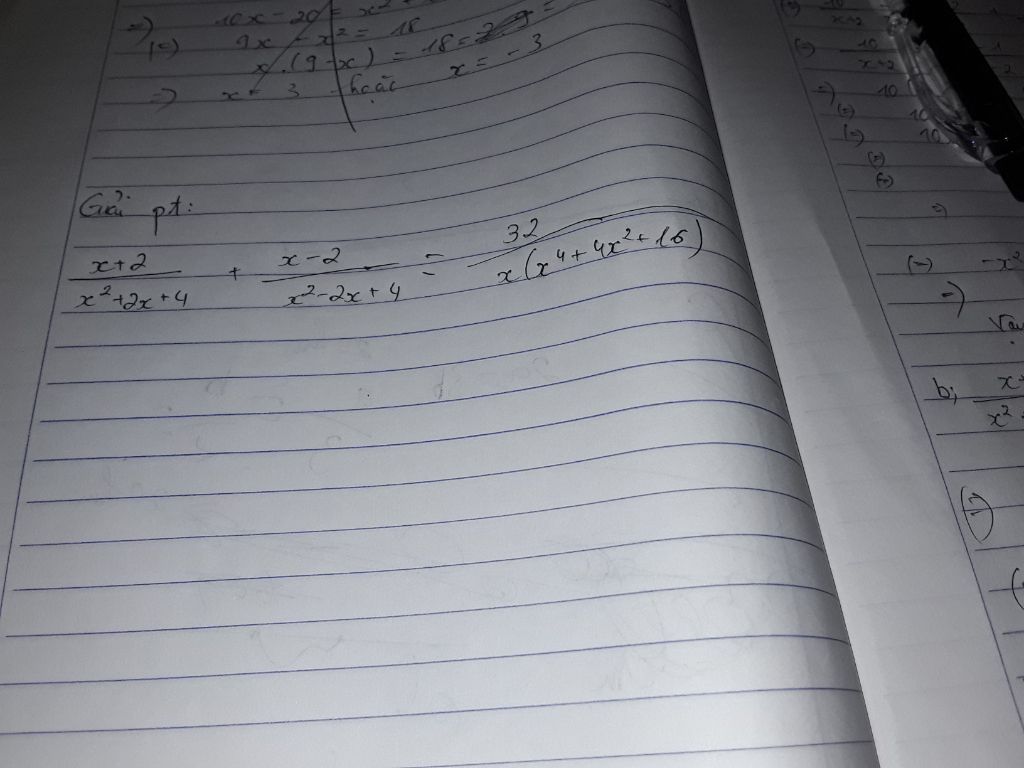 =) 10x - 20 = x²
(=) 9x - x² = 18
x.(9-x) = 18 =
=) x = 3 hoặc x = -3
Giải pt:
x+2 / x²+2x+4 + x-2 / x²-2x+4 = 32 / x(x⁴+4x²+16)
(=) 10 / x+2
(=) 10 / x+2
=) 10
(=) 10
(=) 10
(=)
(=)
=)
(=) -x²
=)
b;
x²
(=)